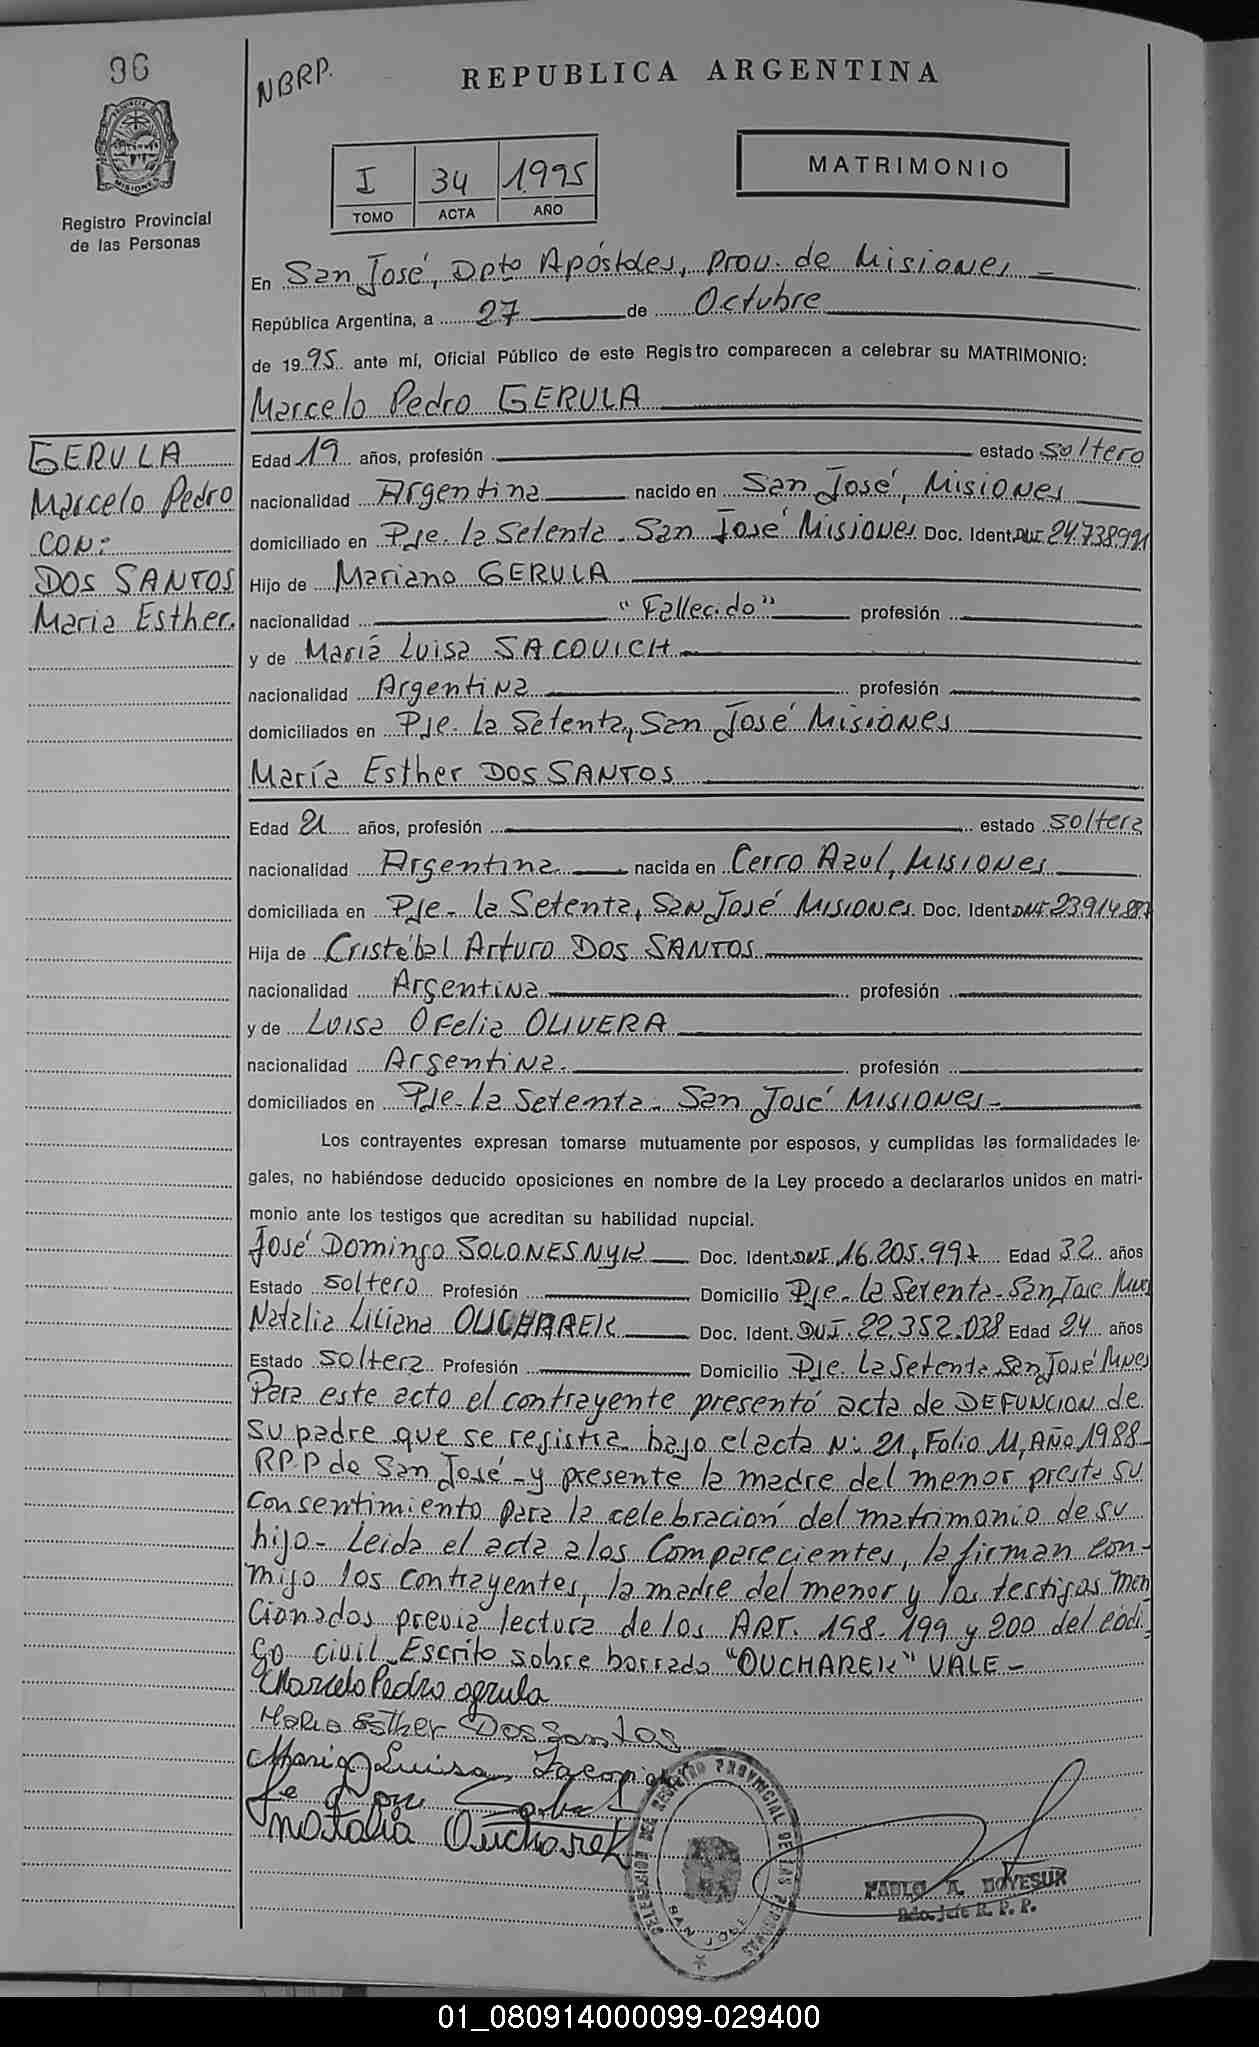 96
NBRP.
REPUBLICA ARGENTINA
I 34 1995
TOMO ACTA AÑO
MATRIMONIO
Registro Provincial
de las Personas
En San José, Dpto Apóstoles, prov. de Misiones
República Argentina, a 27 de Octubre
de 1995 ante mí, Oficial Público de este Registro comparecen a celebrar su MATRIMONIO:
Marcelo Pedro GERULA
GERULA
Marcelo Pedro
CON:
DOS SANTOS
Maria Esther.
Edad 19 años, profesión estado soltero
nacionalidad Argentina nacido en San José, Misiones
domiciliado en Pje. la Setenta. San José Misiones Doc. Ident. DNI. 24.738.991
Hijo de Mariano GERULA
nacionalidad "Fallecido" profesión
y de María Luisa SACOVICH
nacionalidad Argentina profesión
domiciliados en Pje. la Setenta, San José Misiones
María Esther DOS SANTOS
Edad 21 años, profesión estado soltera
nacionalidad Argentina nacida en Cerro Azul, Misiones
domiciliada en Pje. la Setenta, San José Misiones Doc. Ident. DNI
Hija de Cristóbal Arturo DOS SANTOS
nacionalidad Argentina profesión
y de Luisa Ofelia OLIVERA
nacionalidad Argentina. profesión
domiciliados en Pje. la Setenta. San José Misiones-
Los contrayentes expresan tomarse mutuamente por esposos, y cumplidas las formalidades le-
gales, no habiéndose deducido oposiciones en nombre de la Ley procedo a declararlos unidos en matri-
monio ante los testigos que acreditan su habilidad nupcial.
José Domingo SOLONESNYK Doc. Ident. DNI. 16.205.997 Edad 32 años
Estado soltero Profesión Domicilio Pje. la Setenta. San José
Natalia Liliana OUCHAREK Doc. Ident. DNI. 22.352.038 Edad 24 años
Estado soltera Profesión Domicilio Pje la Setenta San José Mnes
Para este acto el contrayente presentó acta de DEFUNCION de
su padre que se registra bajo el acta N: 21, Folio 11, AÑO 1988
R.P.P de San José - y presente la madre del menor presta su
consentimiento para la celebración del matrimonio de su
hijo- Leida el acta a los comparecientes, la firman con-
migo los contrayentes, la madre del menor y los testigos men
cionados previa lectura de los ART. 198. 199 y 200 del codi
go civil. Escrito sobre borrado "OUCHAREK" VALE-
Marcelo Pedro gerula
Maria Esther Dos Santos
Maria Luisa
Natalia Oucharek
DEL REGISTRO PROVINCIAL DE LAS PERSONAS
SAN JOSE
PABLO A. DOYESUK
Jefe R. P. P.
01_080914000099-029400